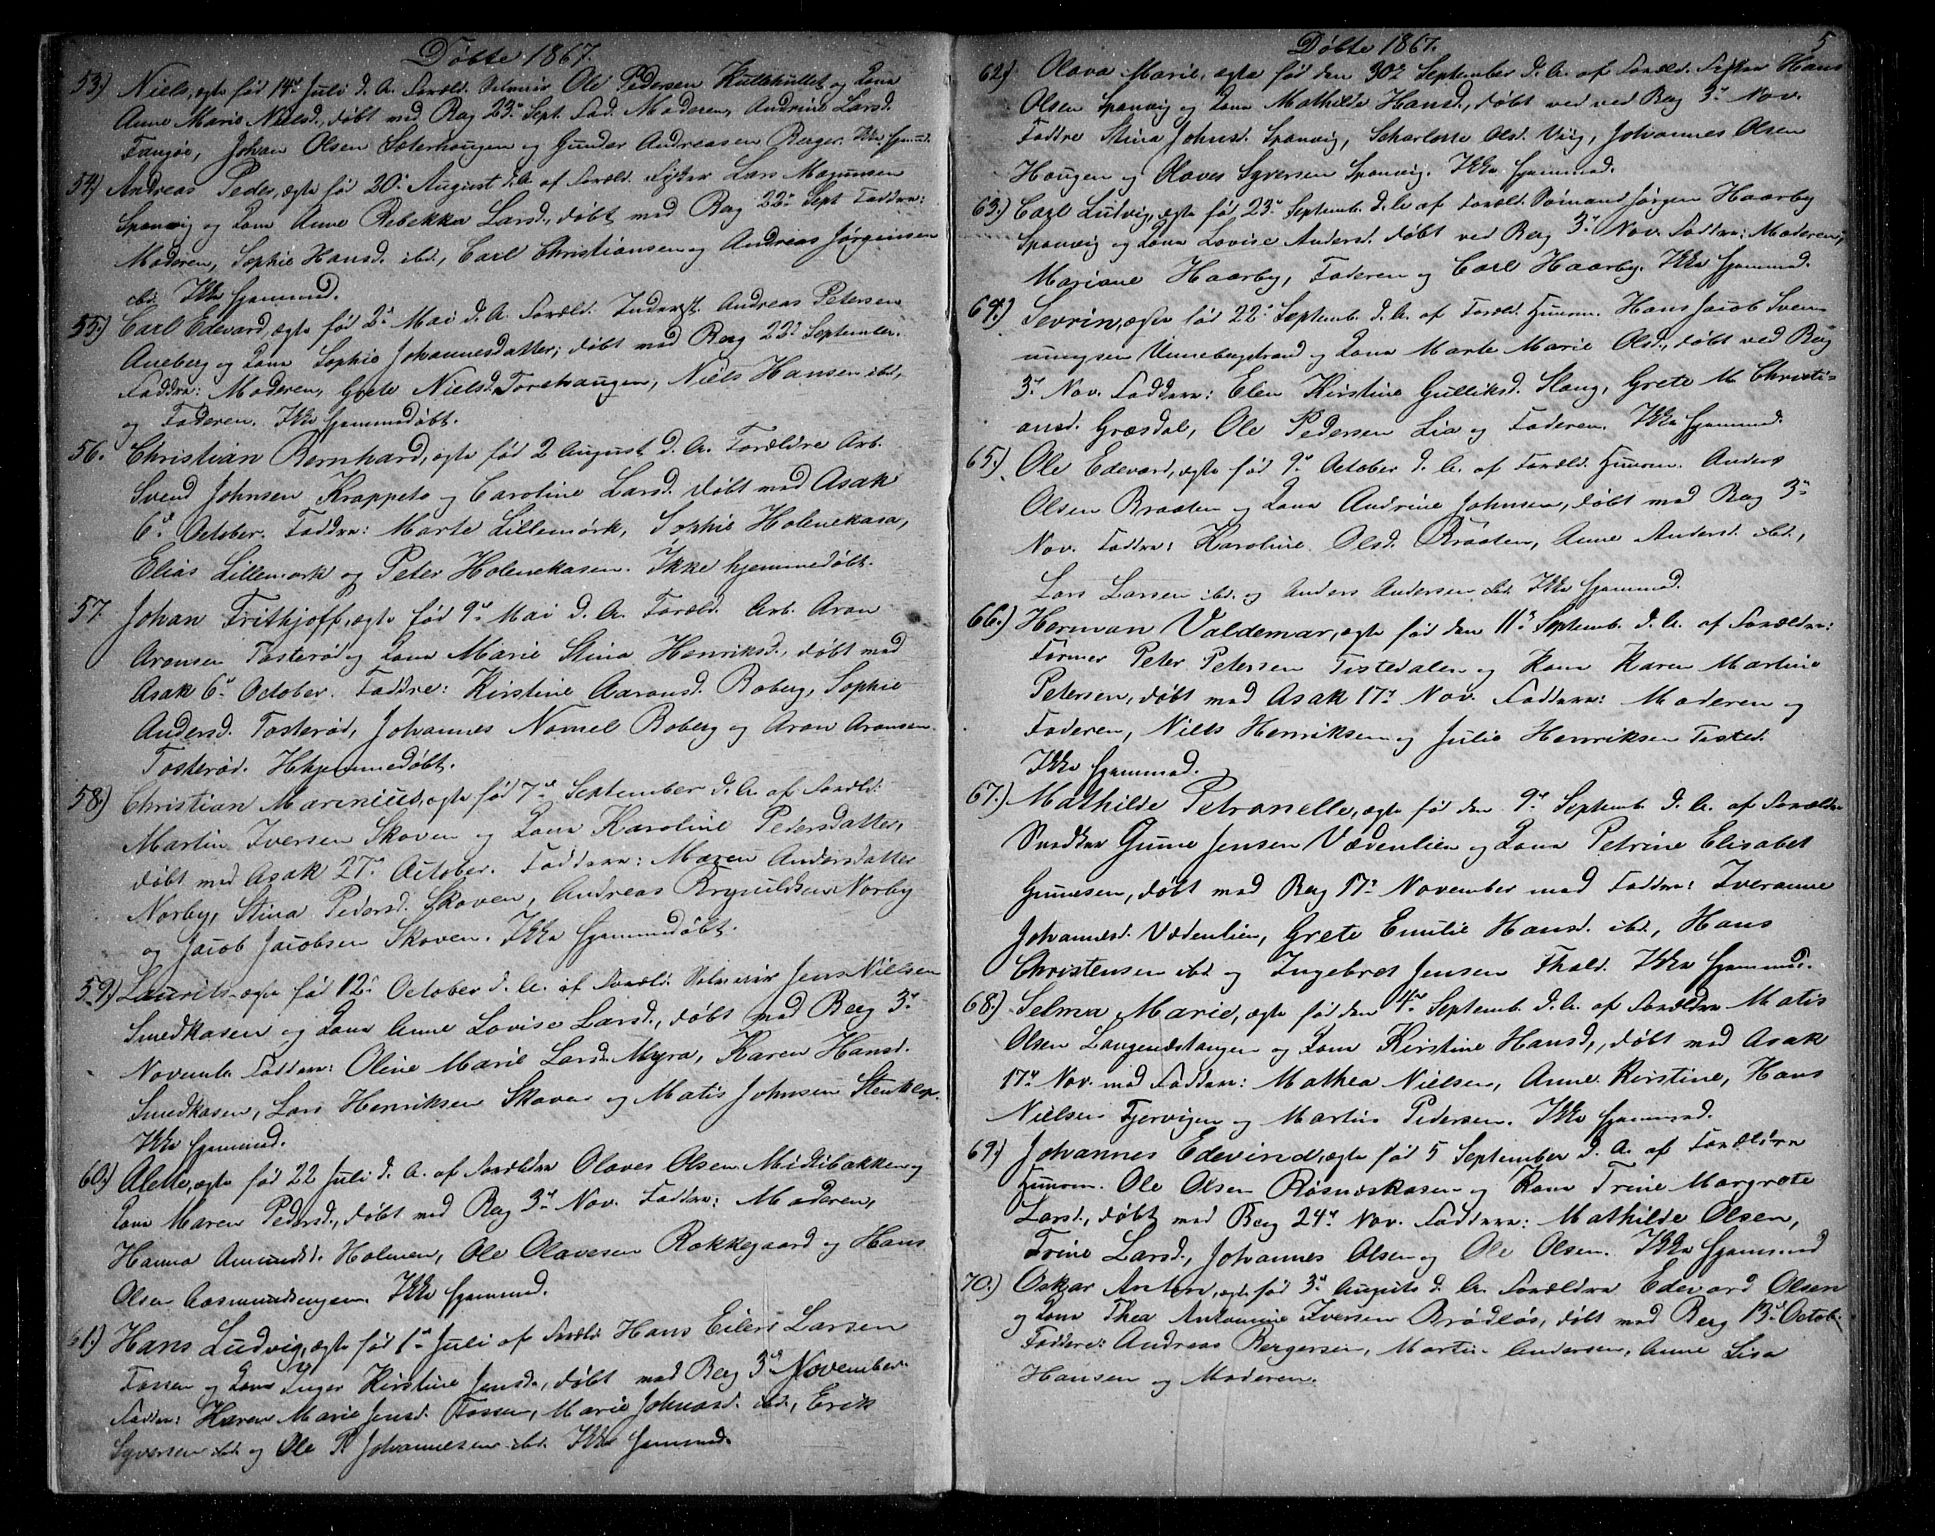 Döbte 1867.
53.) Niels, ægte fød 14de Juli d. A. Foræld. Selveier Ole Pedersen Kullehullet og Kone
Anne Marie Nielsd., döbt ved Berg 22de Sept. Fad. Moderen, Andrine Larsd.
Johan Olsen Sæterhaugen og Gunder Andreasen Berger. Ikke hjemmed.
54.) Andreas Peder, ægte fød 20de August d. A. af Foræld. Fisker Lars Magnusen
Sponvig og Kone Anne Rebekka Larsd., döbt ved Berg 22de Sept. Faddere:
Moderen, Sophie Hansd. ibd., Carl Christiansen og Andreas Jørgensen
ibd. Ikke hjemmed.
55.) Carl Edevard, ægte fød 2de Mai d. A. Foræld. Inderst. Andreas Petersen
Aneberg og Kone Sophie Johannesdatter, döbt ved Berg 22de September.
Faddre: Moderen, Grete Nielsd. Torehaugen, Niels Hansen ibd.
og Faderen. Ikke hjemmedöbt.
56. Christian Bernhard, ægte fød 2 August d. A. Forældre Arb.
Svend Johnsen Krappeto og Caroline Larsd. döbt ved Asak
6te October. Faddre: Marte Lillemörk, Sophie Holenekasa,
Elias Lillemörk og Peter Holenekasen. Ikke hjemmedöbt.
57. Johan Frithjoff, ægte fød 9de Mai d. A. Foræld. Arb. Aron
Aronsen Tosterød og Kone Marie Stina Henriksd., döbt ved
Asak 6te October. Faddre: Kirstine Aaronsd. Boberg, Sophie
Andersd. Tosterød, Johannes Nomel Boberg og Aron Aronsen
Tosterød. Hhjemmedöbt.
58.) Christian Marinius, ægte fød 7de September d. A. af Foræld.
Martin Iversen Skoven og Kone Karoline Pedersdatter,
döbt ved Asak 27de October. Faddere: Maren Andersdatter
Norby, Stina Pedersd. Skoven, Andreas Norby
og Jacob Jacobsen Skoven. Ikke hjemmedöbt.
59.) Laurits, ægte fød 12te October d. A. af Foræld. Selveier Jens Nielsen
Smedkasen og Kone Anne Lovise Larsd., döbt ved Berg 3de
Novemb. Faddere: Oline Marie Larsd. Myra, Karen Hansd.
Smedkasen, Lars Henriksen Skoven og Matis Johnsen
Ikke hjemmed.
60.) Alette, ægte fød 22 Juli d. A. af Forældre Olaves Olsen Midtibakken og
Kone Maren Pedersd., döbt ved Berg 3de Nov. Faddere: Moderen,
Hanna Amundsd. Holmen, Ole Olavesen Rokkegaard og Hans
Olsen Aasmundsengen. Ikke hjemmed.
61.) Hans Ludvig, ægte fød 1ste Juli af Foræld. Hans Eilert Larsen
Fossen og Kone Inger Kirstine Jensd., döbt ved Berg 3de November
Faddr: Karen Marie Jensd. Fossen, Marie Johnsd. ibd., Erik
Syversen ibd. og Ole P. Johannesen ibd. Ikke hjemmed.
5
Döbte 1867.
62.) Olava Marie, ægte fød den 30de September d. A. af Foræld. Fisker Hans
Olsen Sponvig og Kone Mathilde Hansd., döbt ved ved Berg 3de Nov.
Faddre Stina Johnsd. Sponvig, Scharlotte Olsd. Viig, Johannes Olsen
Haugen og Olaves Syversen Sponvig. Ikke hjemmed.
63.) Carl Ludvig, ægte fød 23de Septemb. d. A. af Foræld. Sømand Jørgen Haarby
Sponvig og Kone Lovise Andersd. döbt ved Berg 3de Nov. Faddere: Moderen,
Mariane Haarby, Faderen og Carl Haarby. Ikke hjemmed.
64.) Sevrin, ægte fød 22de Septemb. d. A. af Foræld. Huusm. Hans Jacob Sven-
ningsen Unnebergstrand og Kone Marte Marie Olsd., döbt ved Berg
3de Nov. Faddere: Elen Kirstine Gulliksd. Slang, Grete M. Christi-
ansd. Græsdal, Ole Pedersen Lia og Faderen. Ikke hjemmed.
65.) Ole Edevard, ægte fød 9de October d. A. af Foræld. Huusm. Anders
Olsen Braaten og Kone Andrine Johnsen, döbt ved Berg 3de
Nov. Faddere: Karoline Olsd. Braaten, Anne Andersd. ibd.,
Lars Larsen ibd. og Anders Andersen ibd. Ikke hjemmed.
66.) Herman Valdemar, ægte fød den 11te Septemb. d. A. af Forældre:
Former Peter Petersen Tistedalen og Kone Karen Martine
Petersen, döbt ved Asak 17de Nov. Faddere: Moderen og
Faderen, Niels Henriksen og Julie Henriksen Tisted.
Ikke hjemmed.
67.) Mathilde Petranelle, ægte fød den 9de Septemb. d. A. af Forældre
Snedker Gune Jensen Vædenlien og Kone Petrine Elisabet
Gunesen, döbt ved Berg 17de November med Faddere: Iveranne
Johannesd. Vædenlien, Grete Emilie Hansd. ibd., Hans
Christensen ibd og Ingebret Jensen Thald. Ikke hjemmed.
68.) Selma Marie, ægte fød den 4de Septemb. d. A. af Forældre Matis
Olsen Langenæstangen og Kone Kirstine Hansd., döbt ved Asak
17de Nov. med Faddere: Mathea Nielsen, Anne Kirstine, Hans
Nielsen Tjervigen og Martin Pedersen. Ikke hjemmed.
69.) Johannes Edevind, ægte fød 5 September d. A. af Forældre
Huusm. Ole Olsen Røsneskasen og Kone Trine Margrete
Larsd., döbt ved Berg 24de Nov. Faddere: Mathilde Olsen,
Trine Larsd., Johannes Olsen og Ole Olsen. Ikke hjemmed
70.) Oskar Anton, ægte fød 3de Augusts d. A. Forældre Edevard Olsen
og Kone Thea Antonine Iversen Brödlös, döbt ved Berg 13de Octob.
Faddere: Andreas Bergersen, Martin Andersen, Anne Lisa
Hansen og Moderen.